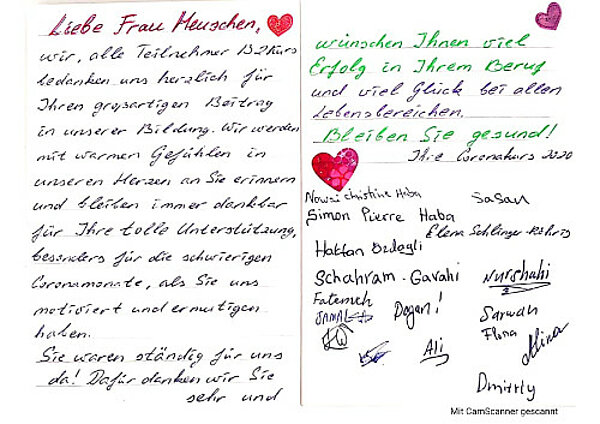 Liebe Frau Menschen,
wir, alle Teilnehmer B2Kurs
bedanken uns herzlich für
Ihren großartigen Beitrag
in unserer Bildung. Wir werden
mit warmen Gefühlen in
unseren Herzen an Sie erinnern
und bleiben immer dankbar
für Ihre tolle Unterstützung,
besonders für die schwierigen
Coronamonate, als Sie uns
motiviert und ermutigen
haben.
Sie waren ständig für uns
da! Dafür danken wir Sie
sehr und
wünschen Ihnen viel
Erfolg in Ihrem Beruf
und viel Glück bei allen
Lebensbereichen.
Bleiben Sie gesund!
Ihre Coronakurs 2020
christine Haba
Sasan
Simon Pierre Haba
Elena
Hakan Ozdagli
Schahram - Gavahi
Nurshahi
Fatemeh
Jamal
Dogan!
Sarwan
Flona
Ali
Mina
Dmitriy
Mit CamScanner gescannt